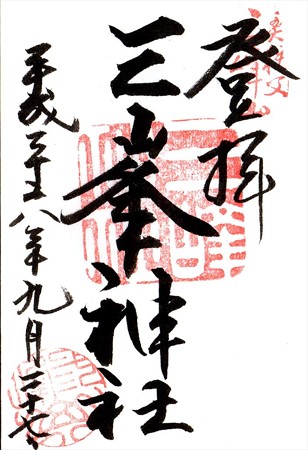 登拝
三峯神社
平成二十八年九月二十七日